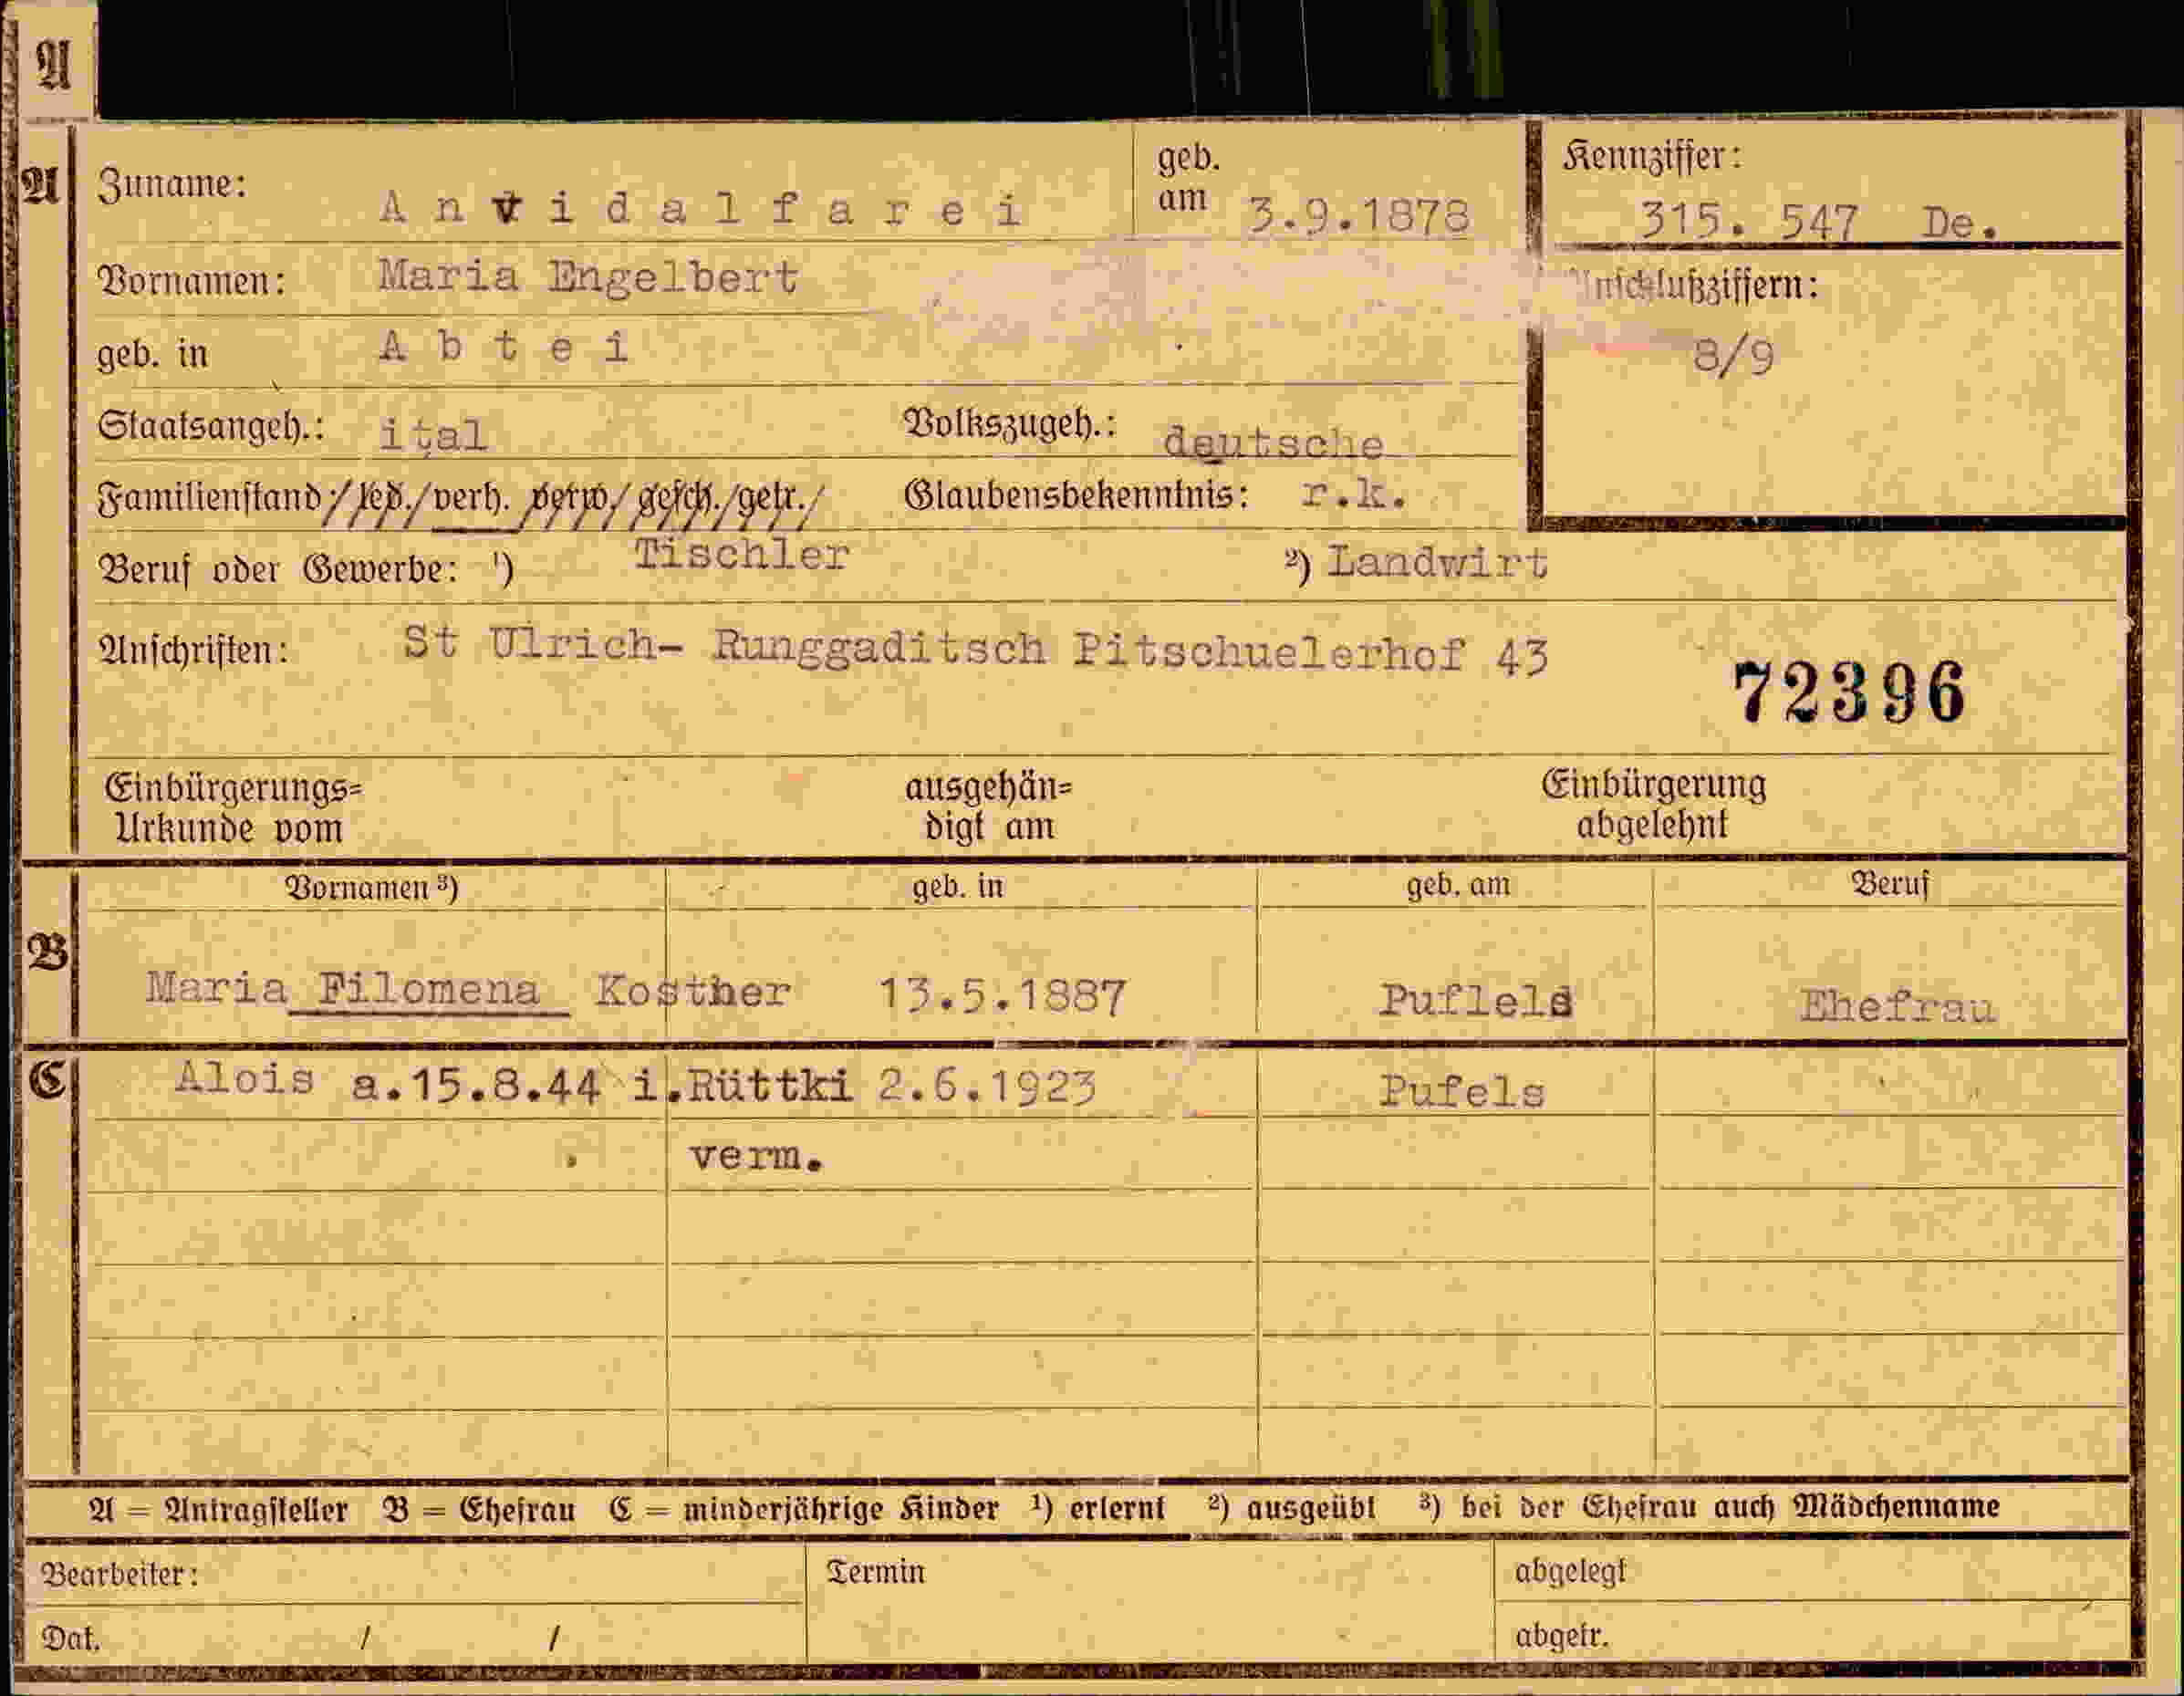 A
A
Zuname: Anvidalfarei geb. am 3.9.1878 Kennziffer: 315. 547 De.
Vornamen: Maria Engelbert Anschlußziffern:
geb. in Abtei 8/9
Staatsangeh.: ital Volkszugeh.: deutsche
Familienstand:/led./verh. verw./gesch./getr./ Glaubensbekenntnis: r.k.
Beruf oder Gewerbe: ¹) Tischler ²) Landwirt
Anschriften: St Ulrich- Runggaditsch Pitschuelerhof 43
72396
Einbürgerungs= ausgehän= Einbürgerung
Urkunde vom digt am abgelehnt
B
Vornamen ³) geb. in geb. am Beruf
Maria Filomena Kostner 13.5.1887 Puflels Ehefrau
C
Alois a.15.8.44 i.Rüttki 2.6.1923 Pufels
verm.
A = Antragsteller B = Ehefrau C = minderjährige Kinder ¹) erlernt ²) ausgeübt ³) bei der Ehefrau auch Mädchenname
Bearbeiter: Termin abgelegt
Dat. / / abgetr.